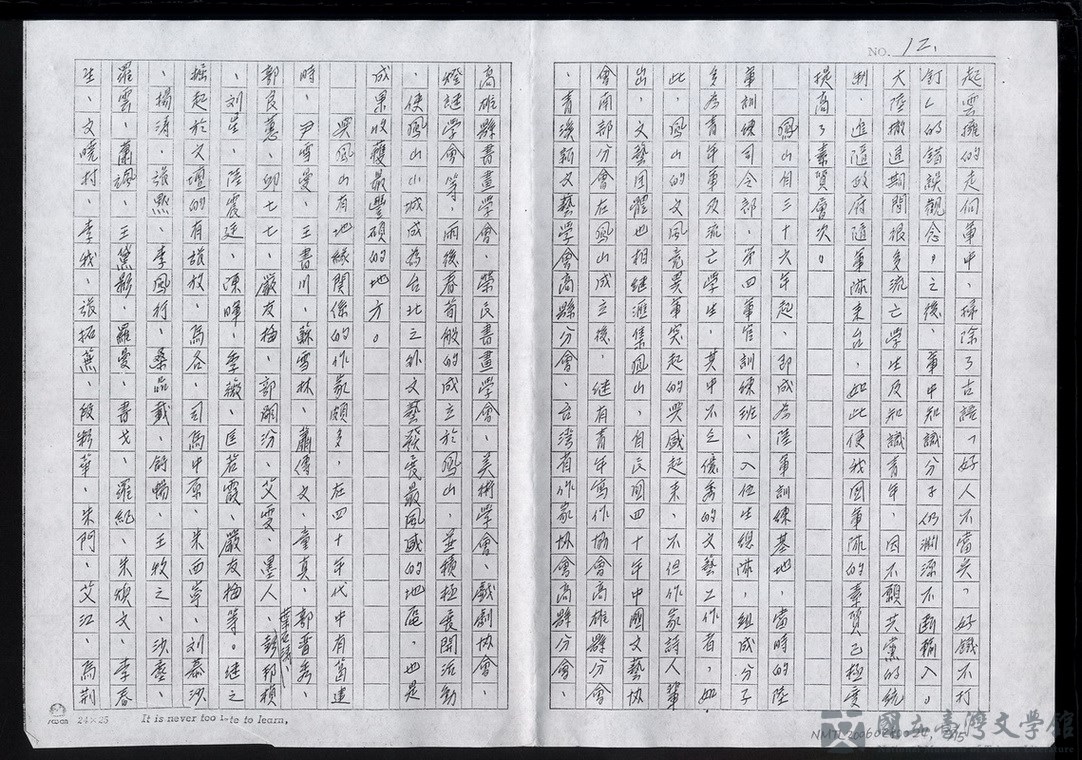 NO. 12.
起雲擁的走向軍中,掃除了古語「好人不當兵,好鐵不打
釘」的錯誤觀念。之後,軍中知識分子仍淵源不斷輸入。
大陸撤退期間很多流亡學生及知識青年,因不願共黨的統
制,追隨政府隨軍隊來台,如此便我國軍隊的素質已極度
提高了素質層次。
鳳山自三十六年起,即成為陸軍訓練基地,當時的陸
軍訓練司令部、第四軍官訓練班、入伍生總隊,組成分子
多為青年軍及流亡學生,其中不乏優秀的文藝工作者,如
此,鳳山的文風竟異軍突起的興盛起來,不但作家詩人輩
出,文藝団體也相継滙集鳳山,自民国四十年中國文藝協
會南部分會在鳳山成立後,继有青年寫作協會高雄縣分會
、青溪新文藝學會高縣分會、台灣省作家協會高縣分會、
高雄縣書畫學會、榮民書畫學會、美術學會、戲劇協會、
燈謎學會等,雨後春筍般的成立於鳳山,並積極展開活動
,使鳳山小城成為台北之外文藝發展最風盛的地區,也是
成果收穫最豐碩的地方。
與鳳山有地緣関係的作家頗多,在四十年代中有葛建
時、尹雪曼、王書川、蘇雪林、蕭傳文、童真、郭晉秀、
郭良蕙、邱七七、嚴友梅、郭嗣汾、艾雯、墨人、彭邦楨
、葉石濤
、刘星、陸震廷、陳暉、季薇、匡若霞、嚴友梅等。継之
掘起於文壇的有張放、馮各、司馬中原、朱西甯、刘慕沙
、楊濤、張默、李風行、桑品載、舒暢、王牧之、沙蹇、
羅雲、蕭颯、王黛影、羅曼、書戈、羅紀、朱煩文、李春
生、文曉村、李戎、張拓蕪、段彩華、朱門、艾江、馬荆
24×25
It is never too late to learn.
NMTL
國立臺灣文學館
National Museum of Taiwan Literature